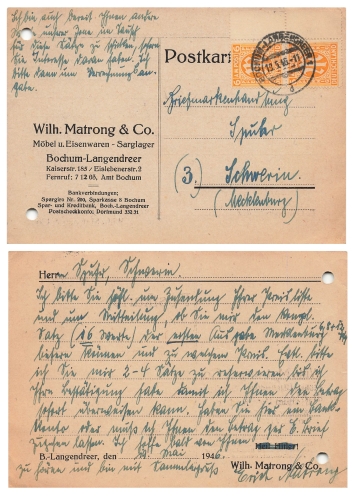 Ich bin auch bereit Ihnen andere
Sätze zu schicken, sofern
Sie Interesse daran haben. Ich
bitte dann um Verrechnung
Postkarte
Wilh. Matrong & Co.
Möbel u. Eisenwaren - Sarglager
Bochum-Langendreer
Kaiserstr. 185 / Eislebenerstr. 2
Fernruf: 7 12 05, Amt Bochum
Bankverbindungen:
Spargiro Nr. 200, Sparkasse 5 Bochum
Spar- und Kreditbank, Boch.-Langendreer
Postscheckkonto; Dortmund 352 51
Briefmarkenhandlung
Spuhr
(3.) Schwerin.
(Mecklenburg)
Herrn Spuhr, Schwerin.
Ich bitte Sie höfl. um Zusendung Ihrer Preisliste
und um Mitteilung, ob Sie mir den kompl.
Satz (16 Werte) der ersten Ausgabe Mecklenburg
liefern können und zu welchem Preis. Evtl. bitte
ich Sie mir 2-4 Sätze zu reservieren bis ich
Ihre Bestätigung habe damit ich Ihnen den Betrag
sofort überweisen kann. Haben Sie hier ein Bank-
Konto oder muß ich Ihnen den Betrag per E. Brief
zugehen lassen. Ich hoffe bald von Ihnen
B.-Langendreer, den Mai 1946
zu hören und bin mit Sammlergruß
Wilh. Matrong & Co.
Erich Matrong